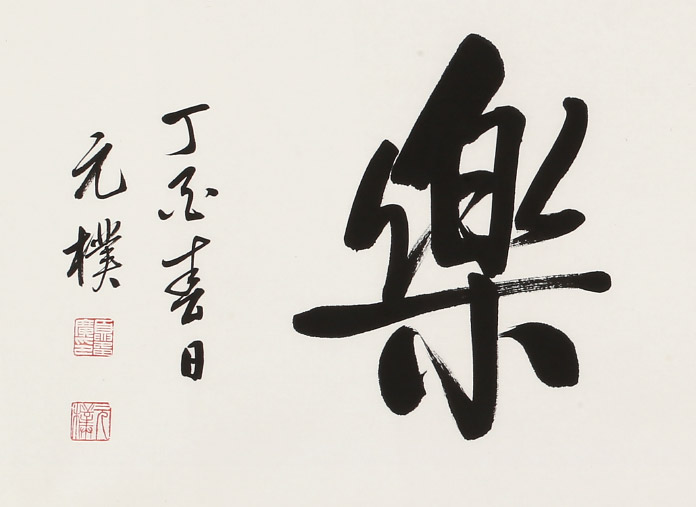 樂
丁酉春日
元樸